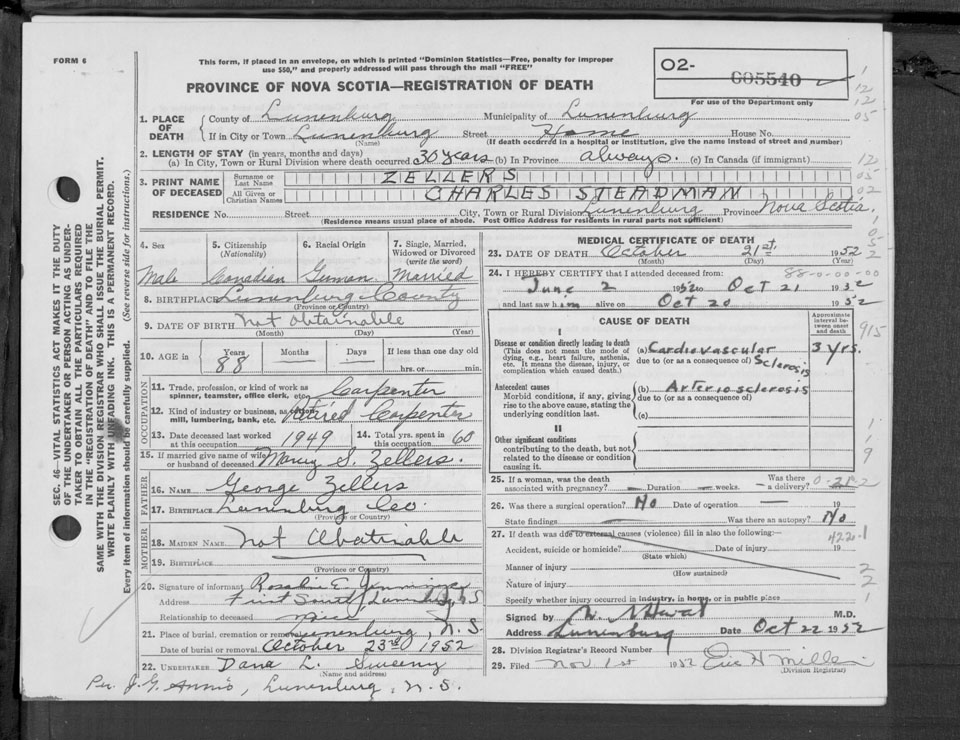 FORM 6
This form, if placed in an envelope, on which is printed "Dominion Statistics—Free, penalty for improper
use $50," and properly addressed will pass through the mail "FREE"
PROVINCE OF NOVA SCOTIA—REGISTRATION OF DEATH
O2- 605540
For use of the Department only
1. PLACE OF DEATH
County of Lunenburg Municipality of Lunenburg
If in City or Town Lunenburg Street Home House No.
(Name) (If death occurred in a hospital or institution, give the name instead of street and number)
2. LENGTH OF STAY (in years, months and days)
(a) In City, Town or Rural Division where death occurred 30 years (b) In Province always. (c) In Canada (if immigrant)
3. PRINT NAME OF DECEASED
Surname or Last Name ZELLERS
All Given or Christian Names CHARLES STEADMAN
RESIDENCE No. Street City, Town or Rural Division Lunenburg Province Nova Scotia.
(Residence means usual place of abode. Post Office Address for residents in rural parts not sufficient)
4. Sex Male
5. Citizenship (Nationality) Canadian
6. Racial Origin German
7. Single, Married, Widowed or Divorced (write the word) Married
8. BIRTHPLACE Lunenburg County
(Province or Country)
9. DATE OF BIRTH Not obtainable
(Month) (Day) (Year)
10. AGE in Years 88 Months Days If less than one day old
hrs. or min.
OCCUPATION
11. Trade, profession, or kind of work as spinner, teamster, office clerk, etc. Carpenter
12. Kind of industry or business, as cotton mill, lumbering, bank, etc. Retired Carpenter
13. Date deceased last worked at this occupation 1949
14. Total yrs. spent in this occupation 60
15. If married give name of wife or husband of deceased Mary S. Zellers.
FATHER
16. NAME George Zellers
17. BIRTHPLACE Lunenburg Co.
(Province or Country)
MOTHER
18. MAIDEN NAME Not Obatinable
19. BIRTHPLACE
(Province or Country)
20. Signature of informant Rosalie E.
Address First South, N S
Relationship to deceased niece
21. Place of burial, cremation or removal Lunenburg, N.S.
Date of burial or removal October 23rd 1952
22. UNDERTAKER Dana L. Sweeny
(Name and address)
Per. J. G. Annis, Lunenburg, N.S.
MEDICAL CERTIFICATE OF DEATH
23. DATE OF DEATH October 21st. 1952
(Month) (Day) (Year)
88-0-00-00
24. I HEREBY CERTIFY that I attended deceased from:
June 2 1952 to Oct 21 1952
and last saw him alive on Oct 20 1952
CAUSE OF DEATH
Approximate interval between onset and death
I
Disease or condition directly leading to death
(This does not mean the mode of dying, e.g., heart failure, asthenia, etc. It means the disease, injury, or complication which caused death.)
(a) Cardiovascular Sclerosis 3 yrs.
due to (or as a consequence of)
Antecedent causes
Morbid conditions, if any, giving rise to the above cause, stating the underlying condition last.
(b) Arteriosclerosis
due to (or as a consequence of)
(c)
II
Other significant conditions
contributing to the death, but not related to the disease or condition causing it.
25. If a woman, was the death associated with pregnancy? Duration weeks. Was there a delivery?
26. Was there a surgical operation? No Date of operation 19
State findings Was there an autopsy? No
27. If death was due to external causes (violence) fill in also the following:
422.1
Accident, suicide or homicide? Date of injury 19
(State which)
Manner of injury
(How sustained)
Nature of injury
Specify whether injury occurred in industry, in home, or in public place
Signed by M.D.
Address Lunenburg Date Oct 22 1952
28. Division Registrar's Record Number
29. Filed Nov 1st 1952 Eric H Miller
(Division Registrar)
SEC. 46—VITAL STATISTICS ACT MAKES IT THE DUTY
OF THE UNDERTAKER OR PERSON ACTING AS UNDER-
TAKER TO OBTAIN ALL THE PARTICULARS REQUIRED
IN THE "REGISTRATION OF DEATH" AND TO FILE THE
SAME WITH THE DIVISION REGISTRAR WHO SHALL ISSUE THE BURIAL PERMIT.
WRITE PLAINLY WITH UNFADING INK. THIS IS A PERMANENT RECORD.
Every item of information should be carefully supplied. (See reverse side for instructions.)